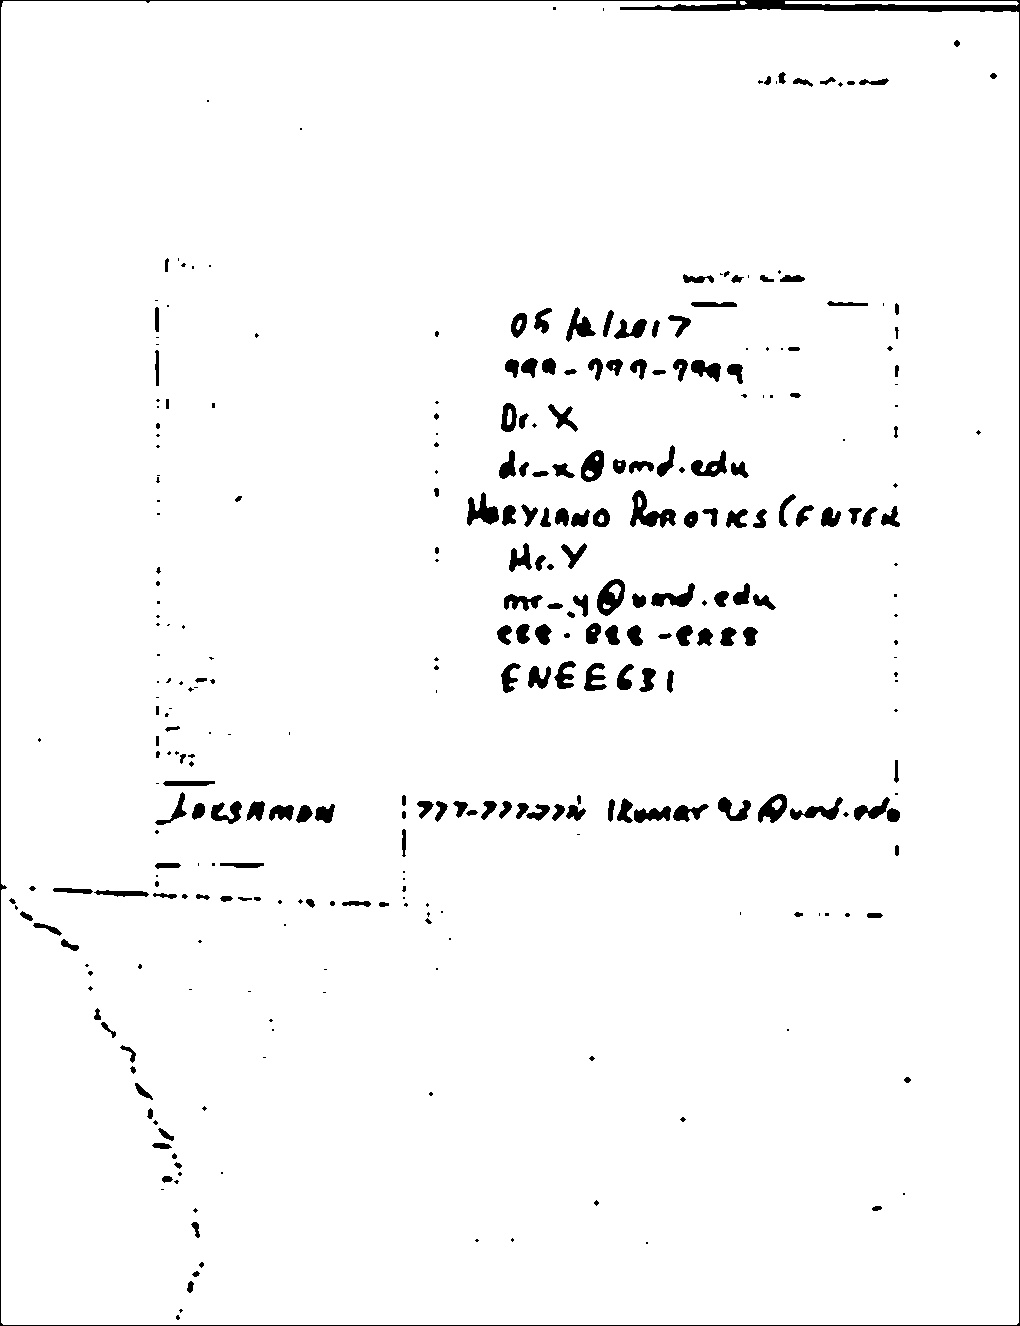 05/12/2017
999-777-7999
Dr. X
dr_x@umd.edu
MARYLAND ROBOTICS CENTER
Mr. Y
mr_y@umd.edu
888-888-8888
ENEE631
LAKSHMAN 777-777-777 lkumar93@umd.edu